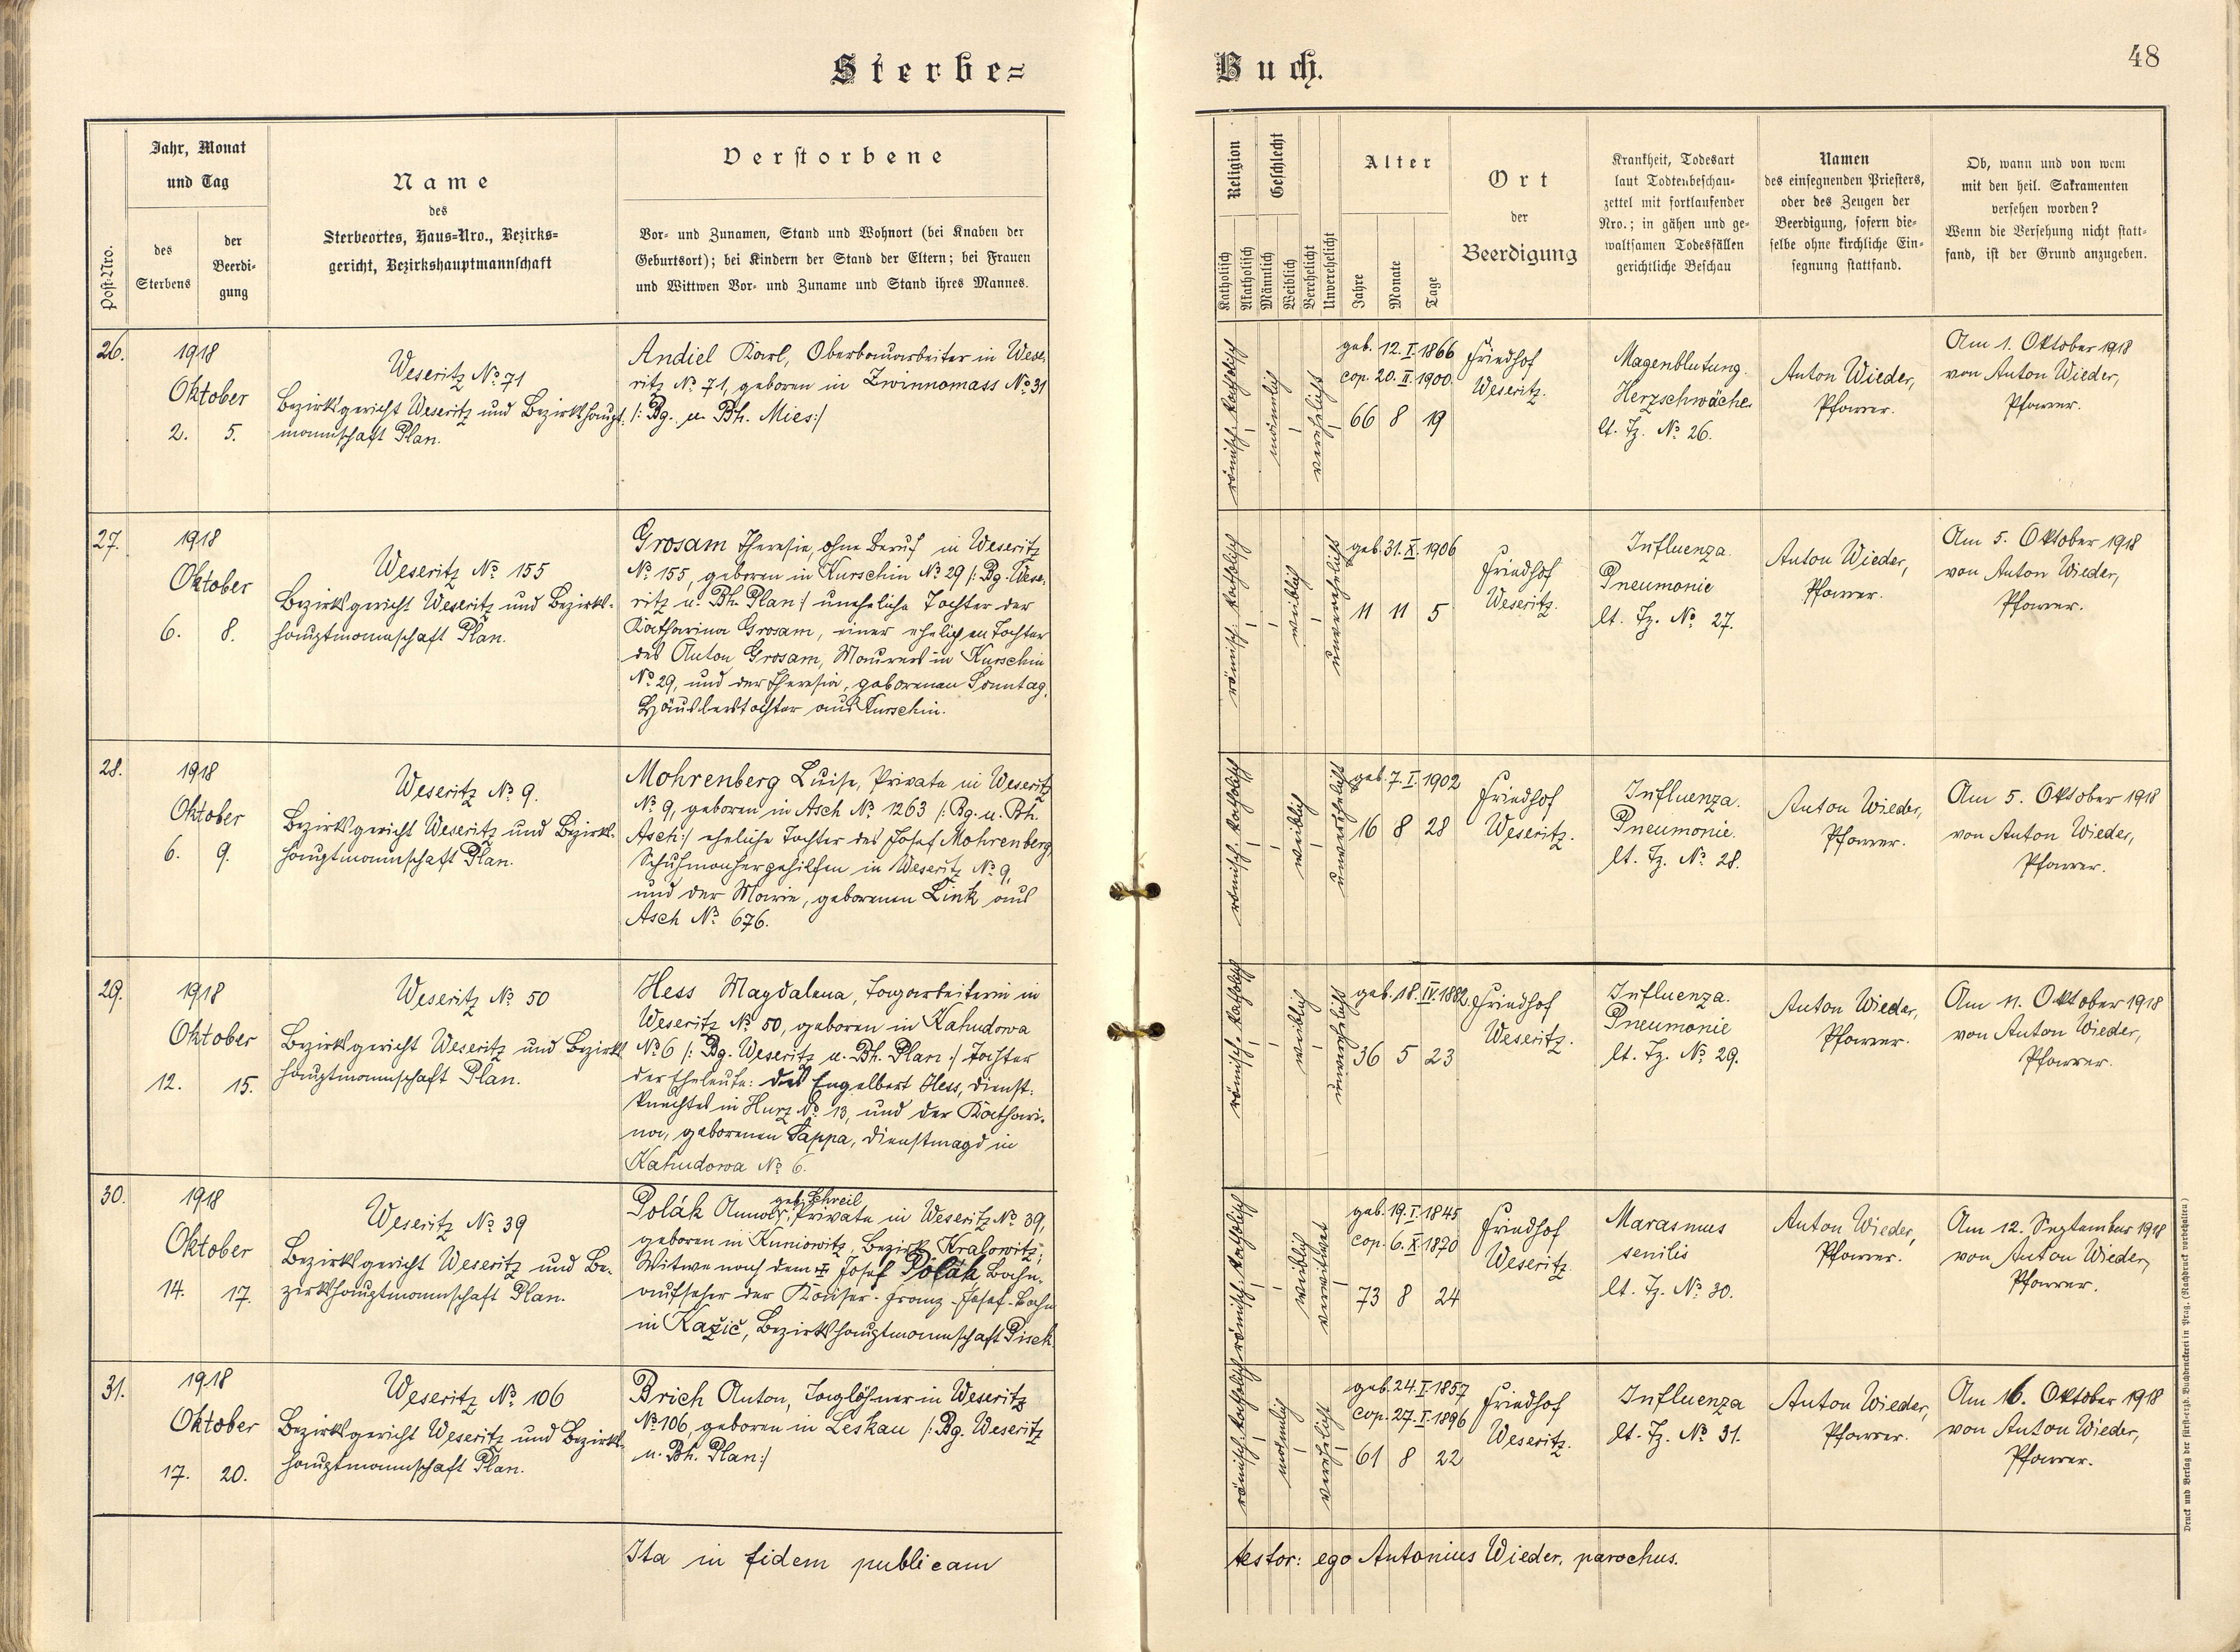 Sterbe=
Buch.
48
Post-Nro.
Jahr, Monat
und Tag
des
Sterbens
der
Beerdi-
gung
Name
des
Sterbeortes, Haus-Nro., Bezirks-
gericht, Bezirkshauptmannschaft
Verstorbene
Vor- und Zunamen, Stand und Wohnort (bei Knaben der
Geburtsort); bei Kindern der Stand der Eltern; bei Frauen
und Wittwen Vor- und Zuname und Stand ihres Mannes.
Religion
Katholisch
Akatholisch
Geschlecht
Männlich
Weiblich
Verehelicht
Unverehelicht
Alter
Jahre
Monate
Tage
Ort
der
Beerdigung
Krankheit, Todesart
laut Todtenbeschau-
zettel mit fortlaufender
Nro.; in gähen und ge-
waltsamen Todesfällen
gerichtliche Beschau
Namen
des einsegnenden Priesters,
oder des Zeugen der
Beerdigung, sofern die-
selbe ohne kirchliche Ein-
segnung stattfand.
Ob, wann und von wem
mit den heil. Sakramenten
versehen worden?
Wenn die Versehung nicht statt-
fand, ist der Grund anzugeben.
26.
1918
Oktober
2. 5.
Weseritz No. 71
Bezirksgericht Weseritz und Bezirkshaupt-
mannschaft Plan.
Andiel Karl, Oberbauarbeiter in Wese-
ritz No. 71, geboren in Zwinnomass No. 31
/: Bg. u. Bh. Mies :/
römisch-katholisch
männlich
verehelicht
geb. 12. I. 1866
cop. 20. II. 1900.
66 8 19
Friedhof
Weseritz.
Magenblutung.
Herzschwäche.
lt. Tz. No. 26.
Anton Wieder,
Pfarrer.
Am 1. Oktober 1918
von Anton Wieder,
Pfarrer.
27.
1918
Oktober
6. 8.
Weseritz No. 155
Bezirksgericht Weseritz und Bezirks-
hauptmannschaft Plan.
Grosam Theresia, ohne Beruf in Weseritz
No. 155, geboren in Kurschin No. 29 /: Bg. Wese-
ritz u. Bh. Plan :/ uneheliche Tochter der
Katharina Grosam, einer ehelichen Tochter
des Anton Grosam, Maurers in Kurschin
No. 29, und der Theresia, geborenen Sonntag,
Häuslerstochter aus Kurschin.
römisch-katholisch
weiblich
unverehelicht
geb. 31. X. 1906
11 11 5
Friedhof
Weseritz.
Influenza.
Pneumonie
lt. Tz. No. 27.
Anton Wieder,
Pfarrer.
Am 5. Oktober 1918
von Anton Wieder,
Pfarrer.
28.
1918
Oktober
6. 9.
Weseritz No. 9.
Bezirksgericht Weseritz und Bezirks-
hauptmannschaft Plan.
Mohrenberg Luise, Private in Weseritz
No. 9, geboren in Asch No. 1263 /: Bg. u. Bh.
Asch :/ eheliche Tochter des Josef Mohrenberg,
Schuhmachergehilfen in Weseritz No. 9,
und der Marie, geborenen Link aus
Asch No. 676.
römisch-katholisch
weiblich
unverehelicht
geb. 7. I. 1902
16 8 28
Friedhof
Weseritz.
Influenza.
Pneumonie.
lt. Tz. No. 28.
Anton Wieder,
Pfarrer.
Am 5. Oktober 1918
von Anton Wieder,
Pfarrer.
29.
1918
Oktober
12. 15.
Weseritz No. 50
Bezirksgericht Weseritz und Bezirks-
hauptmannschaft Plan.
Hess Magdalena, Tagarbeiterin in
Weseritz No. 50, geboren in Kahudowa
No. 6 /: Bg. Weseritz u. Bh. Plan :/ Tochter
der Eheleute: des Engelbert Hess, Dienst-
knechtes in Hurz No. 13, und der Kathari-
na, geborenen Sappa, Dienstmagd in
Kahudowa No. 6.
römisch-katholisch
weiblich
unverehelicht
geb. 18. IV. 1882.
36 5 23
Friedhof
Weseritz.
Influenza.
Pneumonie
lt. Tz. No. 29.
Anton Wieder,
Pfarrer.
Am 11. Oktober 1918
von Anton Wieder,
Pfarrer.
30.
1918
Oktober
14. 17.
Weseritz No. 39
Bezirksgericht Weseritz und Be-
zirkshauptmannschaft Plan.
geb. Schreil
Polák Anna, Private in Weseritz No. 39,
geboren in Kuniowitz, Bezirk Kralowitz;
Witwe nach dem Josef Polák, Bahn-
aufseher der Kaiser-Franz-Josef-Bahn
in Kažič, Bezirkshauptmannschaft Pisek.
römisch-katholisch
weiblich
verwitwet
geb. 19. I. 1845
cop. 6. X. 1870
73 8 24
Friedhof
Weseritz.
Marasmus
senilis
lt. Tz. No. 30.
Anton Wieder,
Pfarrer.
Am 12. September 1918
von Anton Wieder,
Pfarrer.
31.
1918
Oktober
17. 20.
Weseritz No. 106
Bezirksgericht Weseritz und Bezirks-
hauptmannschaft Plan.
Brich Anton, Taglöhner in Weseritz
No. 106, geboren in Leskau /: Bg. Weseritz
u. Bh. Plan :/
römisch-katholisch
männlich
verehelicht
geb. 24. I. 1857
cop. 27. I. 1896
61 8 22
Friedhof
Weseritz.
Influenza
lt. Tz. No. 31.
Anton Wieder,
Pfarrer.
Am 16. Oktober 1918
von Anton Wieder,
Pfarrer.
Ita in fidem publicam
testor: ego Antonius Wieder, parochus.
Druck und Verlag der fürst-erzb. Buchdruckerei in Prag. (Nachdruck vorbehalten.)